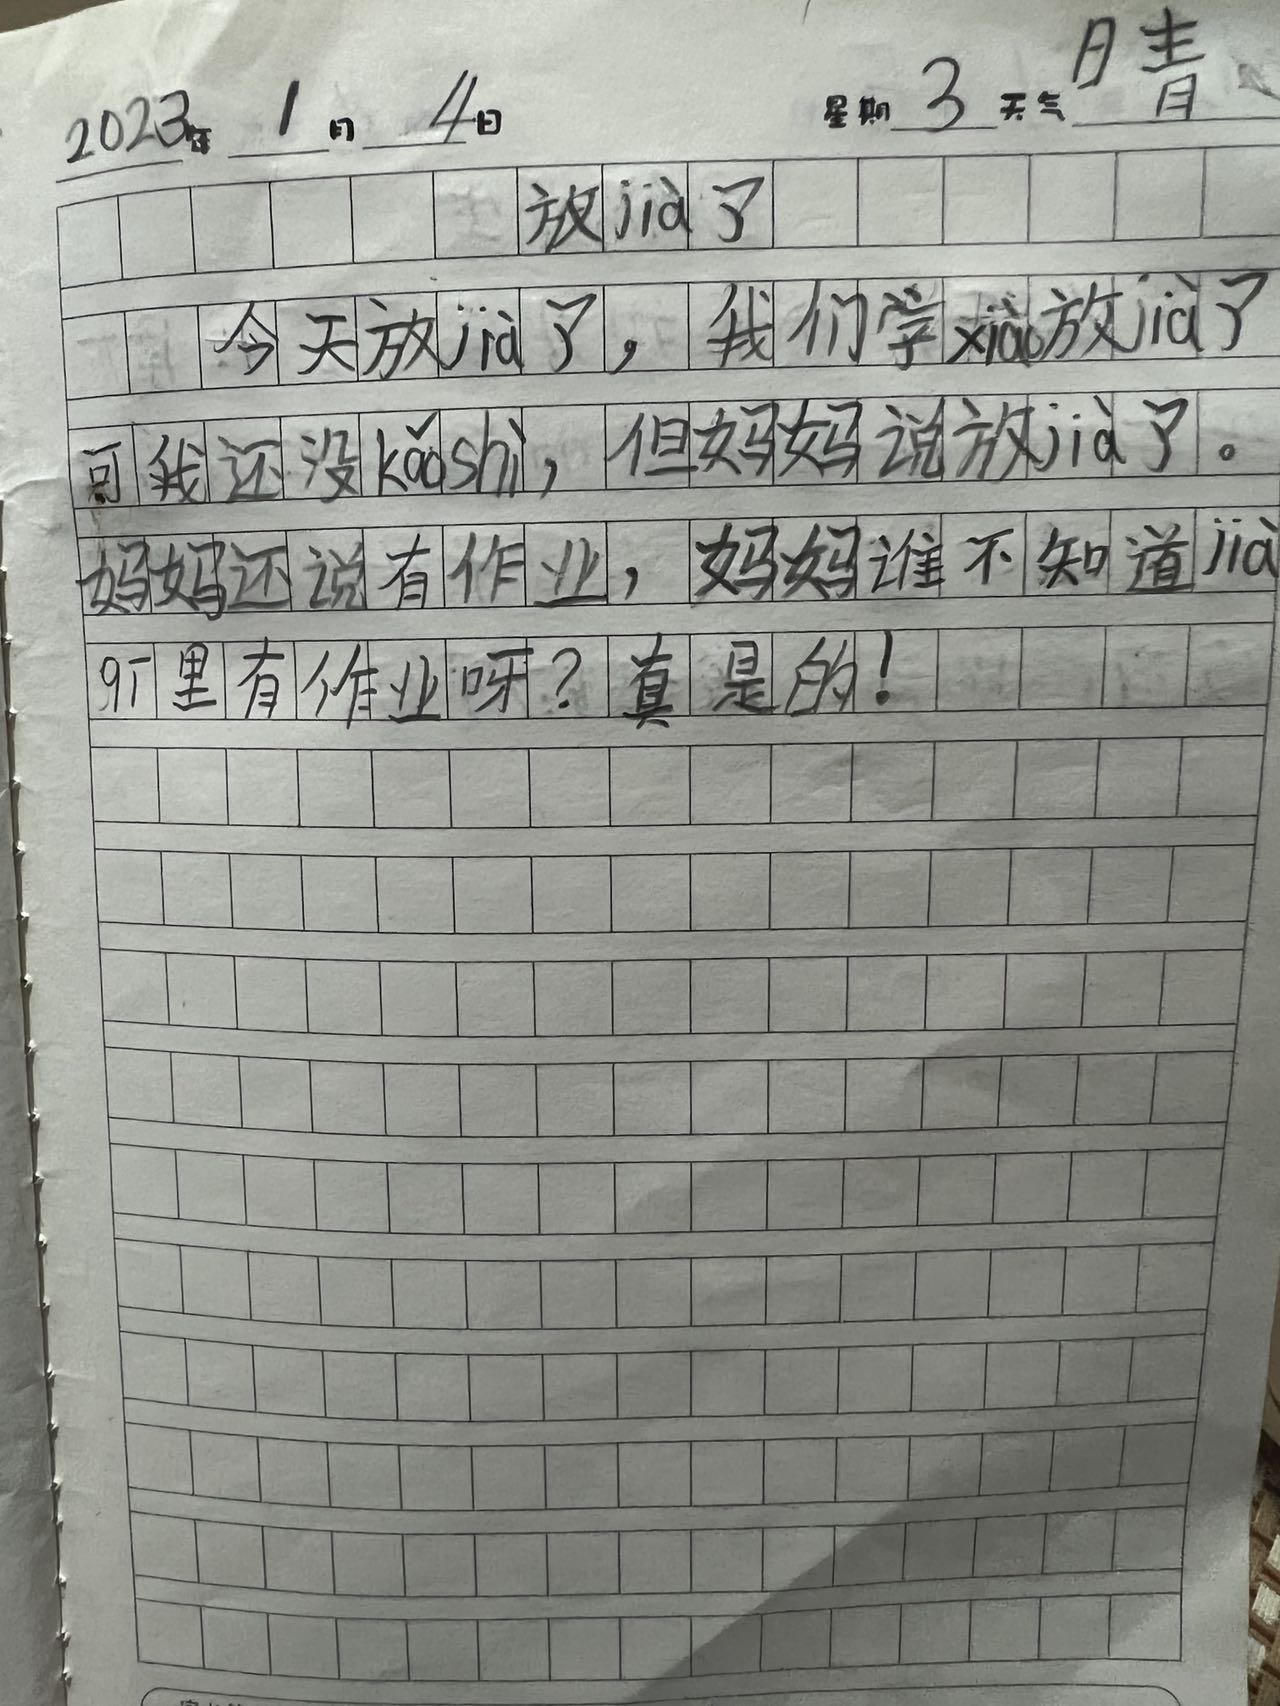 2023年 1月 4日 星期 3 天气 晴
放jià了
今天放jià了，我们学xiào放jià了
可我还没kǎoshì，但妈妈说放jià了。
妈妈还说有作业，妈妈谁不知道jià
期里有作业呀？真是的！